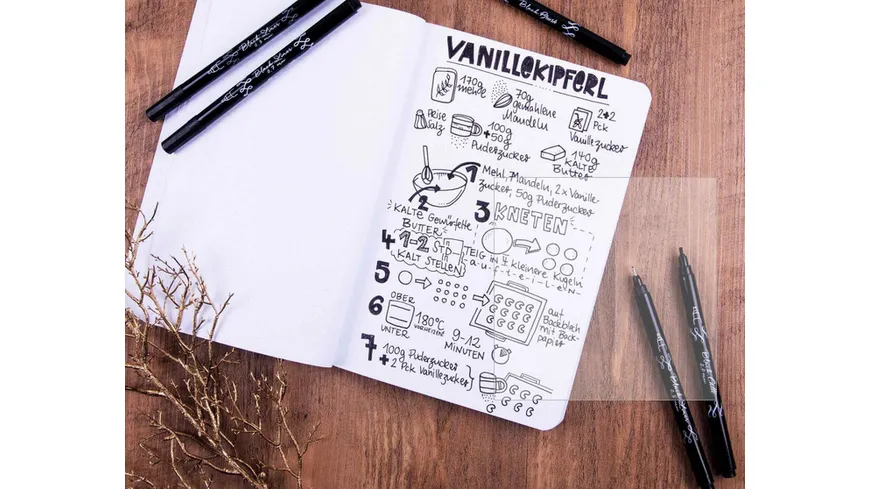 Black Liner
0.5 mm
Black Liner
0.3 mm
Black Brush
VANILLEKIPFERL
170g
mehle
70g
gemahlene
Mandeln
2+2
Pck
Vanillezucker
Prise
Salz
100g
+50g
Puderzucker
140g
KALTE
Butter
1 Mehl, Mandeln, 2x Vanille-
zucker, 50g Puderzucker
2
KALTE Gewürfelte
BUTTER
3 KNETEN
4 1-2 STD
KALT STELLEN
TEIG IN 4 kleinere Kugeln
a-u-f-t-e-i-L-E-N
5
auf
Backblech
mit Back-
papier
6 OBER
UNTER
180°C
VORHEIZEN
9-12
MINUTEN
7 100g Puderzucker
+ 2 Pck Vanillezucker